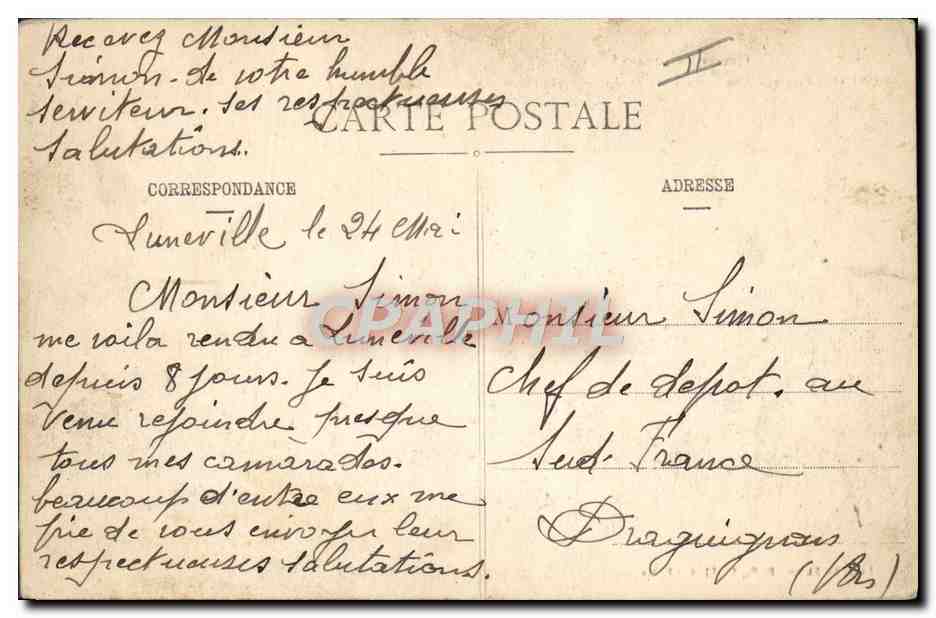 Recevez Monsieur
Simon - de votre humble
serviteur. ses respectueuses
salutations.
II
CARTE POSTALE
CORRESPONDANCE
ADRESSE
Luneville le 24 Mai
Monsieur Simon
me voila rendu a Luneville
depuis 8 jours. Je suis
venu rejoindre presque
tous mes camarades.
beaucoup d'entre eux me
prie de vous envoyer leur
respectueuses salutations.
CPAPHIL
Monsieur Simon
Chef de depot. au
Sud. France
Draguignan
(Var)